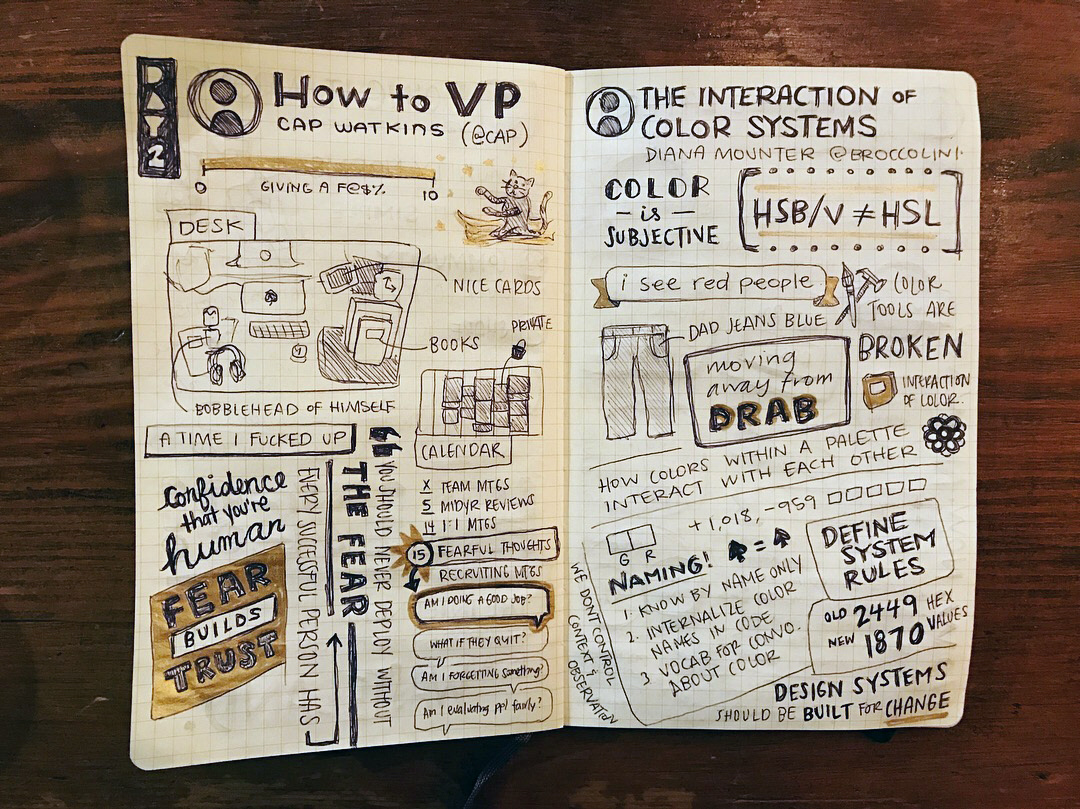 DAY 2
How to VP
CAP WATKINS (@CAP)
0
10
GIVING A F@$%
DESK
NICE CARDS
BOOKS
BOBBLEHEAD OF HIMSELF
PRIVATE
CALENDAR
A TIME I FUCKED UP
confidence
that you're
human
FEAR
BUILDS
TRUST
EVERY SUCCESSFUL PERSON HAS
THE FEAR
“ YOU SHOULD NEVER DEPLOY WITHOUT
X TEAM MTGS
5 MIDYR REVIEWS
14 1:1 MTGS
15 FEARFUL THOUGHTS
RECRUITING MTGS
AM I DOING A GOOD JOB?
WHAT IF THEY QUIT?
AM I FORGETTING something?
Am I evaluating ppl fairly?
THE INTERACTION OF
COLOR SYSTEMS
DIANA MOUNTER @BROCCOLINI
COLOR
– is –
SUBJECTIVE
[HSB/V ≠ HSL]
i see red people
COLOR
TOOLS ARE
BROKEN
DAD JEANS BLUE
moving
away from
DRAB
INTERACTION
OF COLOR
HOW COLORS WITHIN A PALETTE
INTERACT WITH EACH OTHER
+1,018, -959
G R
NAMING! ♠ = ♠
1. KNOW BY NAME ONLY
2. INTERNALIZE COLOR
NAMES IN CODE
3 VOCAB FOR CONVO.
ABOUT COLOR
WE DONT CONTROL
CONTEXT &
OBSERVATION
DEFINE
SYSTEM
RULES
OLD 2449 HEX
NEW 1870 VALUES
DESIGN SYSTEMS
SHOULD BE BUILT FOR CHANGE